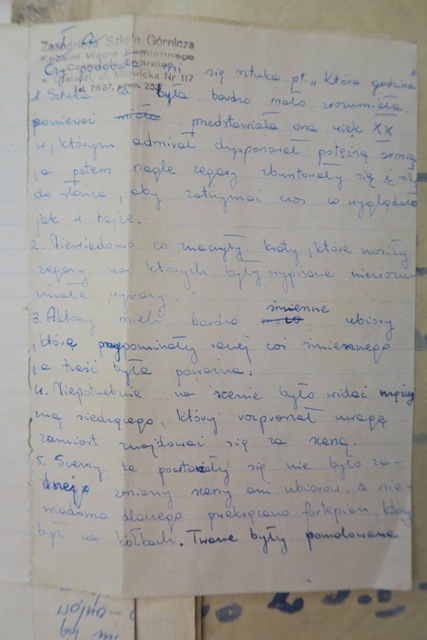 I a
Zasadnicza Szkoła Górnicza
Kopalni Węgla Kamiennego
ul. Milowicka Nr 117
Tel. 711-37, wewn. 253
Czy podobała mi się sztuka pt. „Która godzina"
1. Sztuka ta była bardzo mało zrozumiała
ponieważ przedstawiała ona wiek XX
w którym admirał dysponował potężną armią
a potem nagle zegary zbuntowały się i szły
do słońca, aby zatrzymać czas co wyglądało
jak w bajce.
2. Niewiadomo co znaczyły kraty, które nosiły
zegary na których były wypisane niezrozu-
miałe wyrazy.
3. Aktorzy mieli bardzo śmieszne ubiory
które przypominały raczej coś śmiesznego
a treść była poważna.
4. Niepotrzebnie na scenie było widać mężczy-
znę siedzącego, który rozpraszał uwagę
zamiast znajdować się za sceną.
5. Sceny te powtarzały się nie było ża-
dnej zmiany sceny ani ubiorów, a nie-
wiadomo dlaczego przekręcano fortepian, który
był na kółkach. Twarze były pomalowane
wojna-
by nie